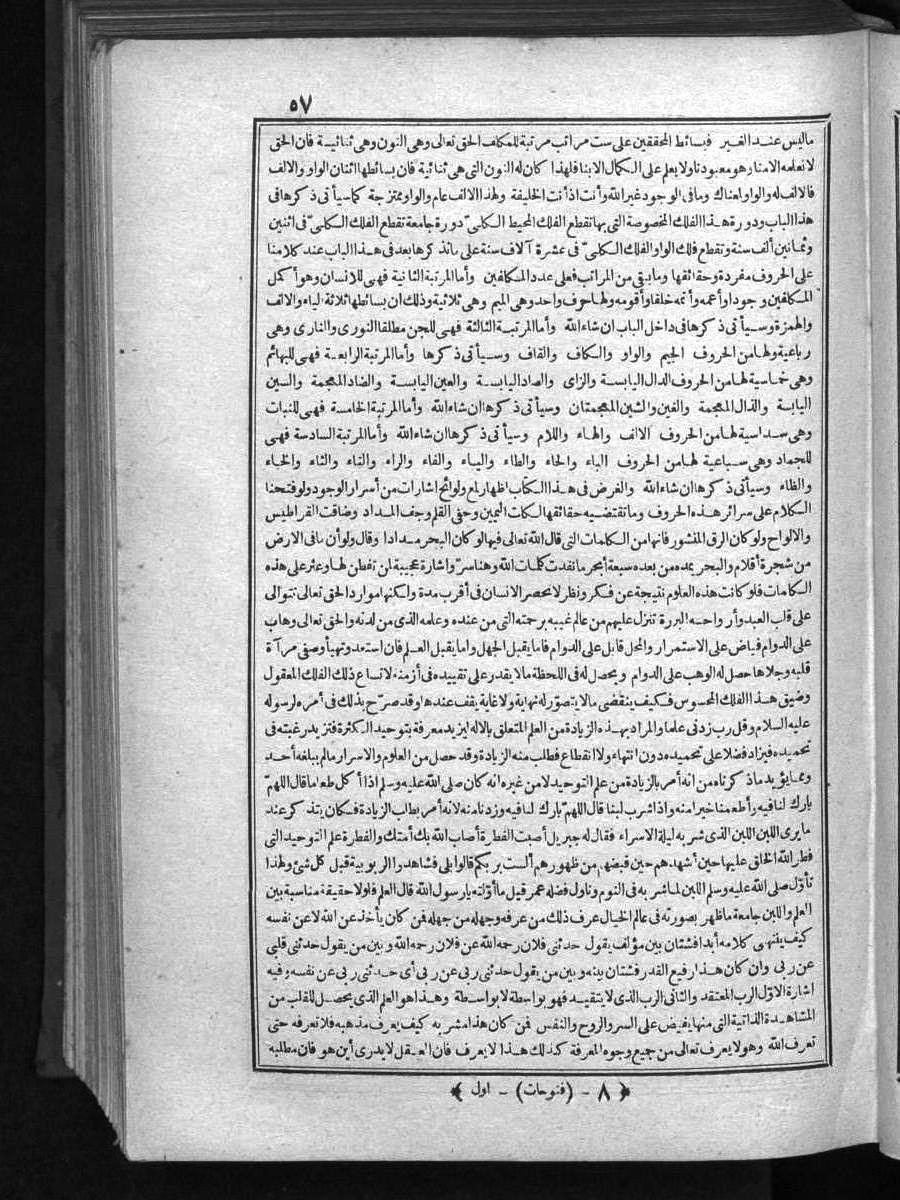 ٥٧
ماليس عند الغير فبسائط المحققين على ست مراتب مرتبة للمكلف الحق تعالى وهى النون وهى ثنائية فان الحق
لانعلمه الامنا وهو معبودنا ولا يعلم على الكمال الابنا فلهذا كان له النون التى هى ثنائية فان بسائطها اثنان الواو والالف
فالالف له والواو لمعناك وما فى الوجود غير الله وأنت اذ أنت الخليفة ولهذا الالف عام والواو ممتزجة كما سيأتى ذكرها فى
هذا الباب ودورة هذا الفلك المخصوصة التى بها تقطع الفلك المحيط الكلىّ دورة جامعة تقطع الفلك الكلىّ فى اثنين
وثمانين ألف سنة وتقطع فلك الواو الفلك الكلىّ فى عشرة آلاف سنة على ما نذكرها بعد فى هذا الباب عند كلامنا
على الحروف مفردة وحقائقها وما بقى من المراتب فعلى عدد المكلفين وأما المرتبة الثانية فهى للانسان وهو أكمل
المكلفين وجودا وأعمه وأتمه خلقا وأقومه ولها حرف واحد وهى الميم وهى ثلاثية وذلك ان بسائطها ثلاثة الياء والالف
والهمزة وسيأتى ذكرها فى داخل الباب ان شاء الله وأما المرتبة الثالثة فهى للجن مطلقا النورى والنارى وهى
رباعية ولها من الحروف الجيم والواو والكاف والقاف وسيأتى ذكرها وأما المرتبة الرابعة فهى للبهائم
وهى خماسية لها من الحروف الدال اليابسة والزاى والصاد اليابسة والعين اليابسة والضاد المعجمة والسين
اليابسة والذال المعجمة والغين والشين المعجمتان وسيأتى ذكرها ان شاء الله وأما المرتبة الخامسة فهى للنبات
وهى سداسية لها من الحروف الالف والهاء واللام وسيأتى ذكرها ان شاء الله وأما المرتبة السادسة فهى
للجماد وهى سباعية لها من الحروف الباء والحاء والطاء والياء والفاء والراء والتاء والثاء والخاء
والظاء وسيأتى ذكرها ان شاء الله والغرض فى هذا الكتاب اظهار لمع ولوائح اشارات من أسرار الوجود ولو فتحنا
الكلام على سرائر هذه الحروف وما تقتضيه حقائقها لكلت اليمين وحفى القلم وجف المداد وضاقت القراطيس
والالواح ولو كان الرق المنشور فانها من الكلمات التى قال الله تعالى فيها لو كان البحر مدادا وقال ولو أن ما فى الارض
من شجرة أقلام والبحر يمده من بعده سبعة أبحر ما نفدت كلمات الله وهنا سرّ واشارة عجيبة لمن تفطن لها وعثر على هذه
الكلمات فلو كانت هذه العلوم نتيجة عن فكر ونظر لانحصر الانسان فى أقرب مدة ولكنها موارد الحق تعالى تتوالى
على قلب العبد وأرواحه البررة تنزل عليهم من عالم غيبه برحمته التى من عنده وعلمه الذى من لدنه والحق تعالى وهاب
على الدوام فياض على الاستمرار والمحل قابل على الدوام فاما يقبل الجهل واما يقبل العلم فان استعد وتهيأ وصفى مرآة
قلبه وجلاها حصل له الوهب على الدوام ويحصل له فى اللحظة ما لا يقدر على تقييده فى أزمنة لاتساع ذلك الفلك المعقول
وضيق هذا الفلك المحسوس فكيف ينقضى ما لا يتصوّر له نهاية ولا غاية يقف عندها وقد صرّح بذلك فى أمره لرسوله
عليه السلام وقل رب زدنى علما والمراد بهذه الزيادة من العلم المتعلق بالاله ليزيد معرفة بتوحيد الكثرة فتزيد رغبته فى
تحميده فيزاد فضلا على تحميده دون انتهاء ولا انقطاع فطلب منه الزيادة وقد حصل من العلوم والاسرار ما لم يبلغه أحد
ومما يؤيد ما ذكرناه من انه أمر بالزيادة من علم التوحيد لا من غيره انه كان صلى الله عليه وسلم اذا أكل طعاما قال اللهمّ
بارك لنا فيه وأطعمنا خيرا منه واذا شرب لبنا قال اللهمّ بارك لنا فيه وزدنا منه لانه أمر بطلب الزيادة فكان يتذكر عند
ما يرى اللبن اللبن الذى شربه ليلة الاسراء فقال له جبريل أصبت الفطرة أصاب الله بك أمتك والفطرة علم التوحيد التى
فطر الله الخلق عليها حين أشهدهم حين قبضهم من ظهورهم ألست بربكم قالوا بلى فشاهدوا الربوبية قبل كل شئ ولهذا
تأوّل صلى الله عليه وسلم اللبن لما شربه فى النوم وناول فضله عمر قيل ما أوّلته يا رسول الله قال العلم فلولا حقيقة مناسبة بين
العلم واللبن جامعة ما ظهر بصورته فى عالم الخيال عرف ذلك من عرفه وجهله من جهله فمن كان يأخذ عن الله لا عن نفسه
كيف ينتهى كلامه أبدا فشتان بين مؤلف يقول حدثنى فلان رحمه الله عن فلان رحمه الله وبين من يقول حدثنى قلبى
عن ربى وان كان هذا رفيع القدر فشتان بينه وبين من يقول حدثنى ربى عن ربى أى حدثنى ربى عن نفسه وفيه
اشارة الاوّل الرب المعتقد والثانى الرب الذى لا يتقيد فهو بواسطة لا بواسطة وهذا هو العلم الذى يحصل للقلب من
المشاهدة الذاتية التى منها يفيض على السر والروح والنفس فمن كان هذا مشربه كيف يعرف مذهبه فلا تعرفه حتى
تعرف الله وهو لا يعرف تعالى من جميع وجوه المعرفة كذلك هذا لا يعرف فان العقل لا يدرى أين هو فان مطلبه
﴿ ٨ - (فتوحات) - اول ﴾